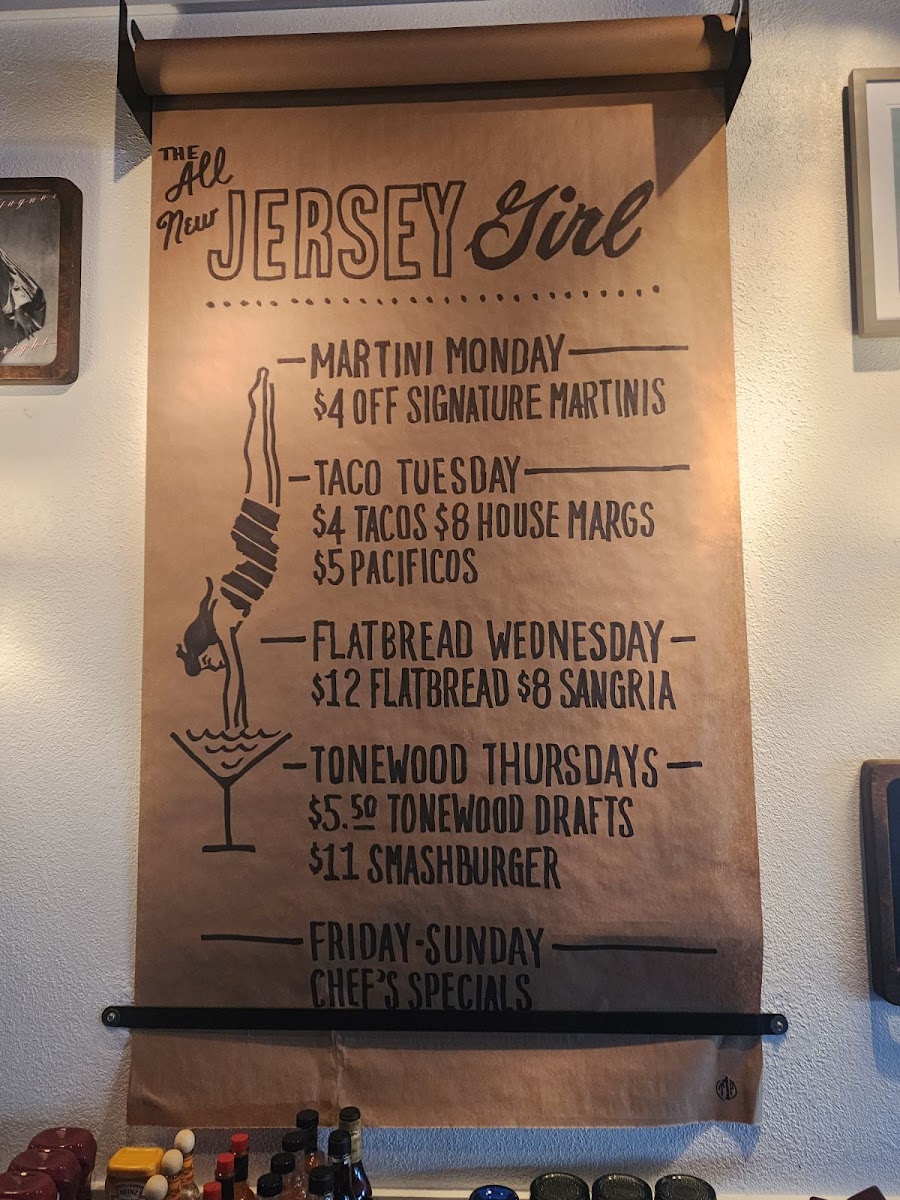 THE
All
New
JERSEY Girl
MARTINI MONDAY
$4 OFF SIGNATURE MARTINIS
TACO TUESDAY
$4 TACOS $8 HOUSE MARGS
$5 PACIFICOS
FLATBREAD WEDNESDAY
$12 FLATBREAD $8 SANGRIA
TONEWOOD THURSDAYS
$5.50 TONEWOOD DRAFTS
$11 SMASHBURGER
FRIDAY-SUNDAY
CHEF'S SPECIALS
HEINZ